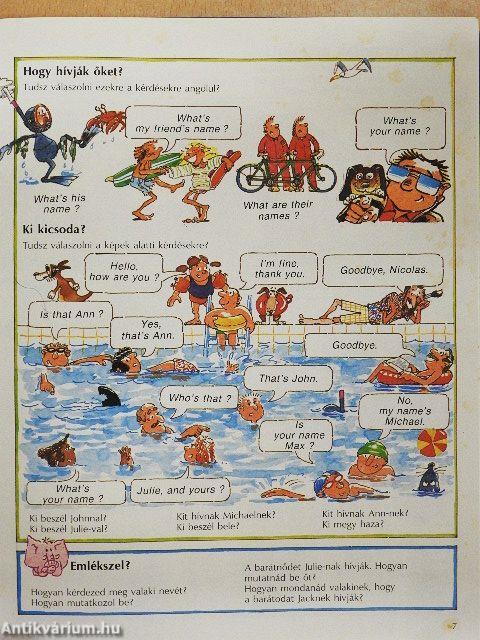 Hogy hívják őket?
Tudsz válaszolni ezekre a kérdésekre angolul?
What's
my friend's name ?
What's
your name ?
What's his
name ?
What are their
names ?
Ki kicsoda?
Tudsz válaszolni a képek alatti kérdésekre?
Hello,
how are you ?
I'm fine,
thank you.
Goodbye, Nicolas.
Is that Ann ?
Yes,
that's Ann.
Goodbye.
That's John.
Who's that ?
No,
my name's
Michael.
Is
your name
Max ?
What's
your name ?
Julie, and yours ?
Ki beszél Johnnal?
Ki beszél Julie-val?
Kit hívnak Michaelnek?
Ki beszél bele?
Kit hívnak Ann-nek?
Ki megy haza?
Emlékszel?
Hogyan kérdezed meg valaki nevét?
Hogyan mutatkozol be?
A barátnődet Julie-nak hívják. Hogyan
mutatnád be őt?
Hogyan mondanád valakinek, hogy
a barátodat Jacknek hívják?
7
Antikvárium.hu